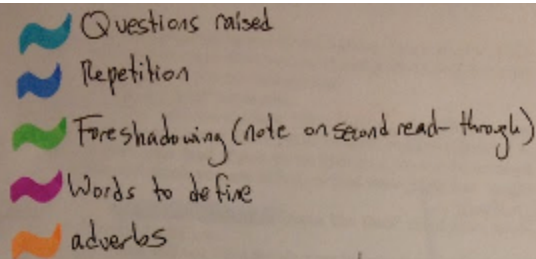 Questions raised
Repetition
Foreshadowing (note on second read-through)
Words to define
adverbs